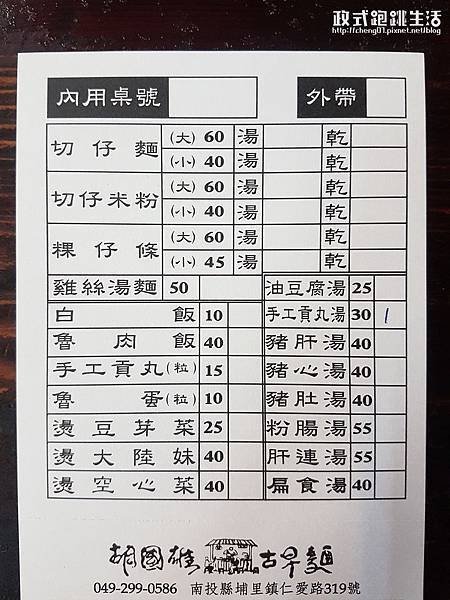 政式跑跳生活
http://fcheng01.pixnet.net/blog
內用桌號 外帶
切仔麵 (大) 60 湯 乾
(小) 40 湯 乾
切仔米粉 (大) 60 湯 乾
(小) 40 湯 乾
粿仔條 (大) 60 湯 乾
(小) 45 湯 乾
雞絲湯麵 50 油豆腐湯 25
白飯 10 手工貢丸湯 30 1
魯肉飯 40 豬肝湯 40
手工貢丸(粒) 15 豬心湯 40
魯蛋(粒) 10 豬肚湯 40
燙豆芽菜 25 粉腸湯 55
燙大陸妹 40 肝連湯 55
燙空心菜 40 扁食湯 40
胡國雄 古早麵
049-299-0586 南投縣埔里鎮仁愛路319號